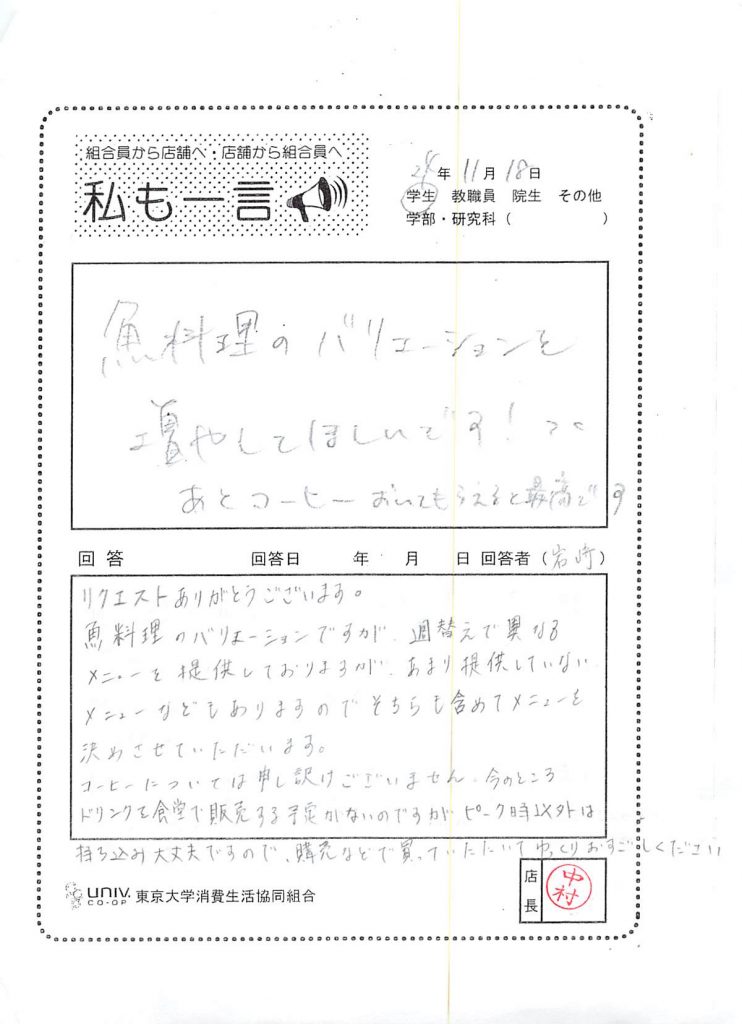 組合員から店舗へ・店舗から組合員へ
私も一言
24年11月18日
学生 教職員 院生 その他
学部・研究科( )
魚料理のバリエーションを
増やしてほしいです!
あとコーヒーおいてもらえると最高です
回答 回答日 年 月 日 回答者(岩崎)
リクエストありがとうございます。
魚料理のバリエーションですが、週替えで異なる
メニューを提供しておりますが、あまり提供していない
メニューなどもありますのでそちらも含めてメニューを
決めさせていただいます。
コーヒーについては申し訳けございません。今のところ
ドリンクを食堂で販売する予定がないのですが ピーク時以外は
持ち込み大丈夫ですので、購売などで買っていただいてゆっくりおすごしください
UNIV. CO-OP 東京大学消費生活協同組合
店長
中村